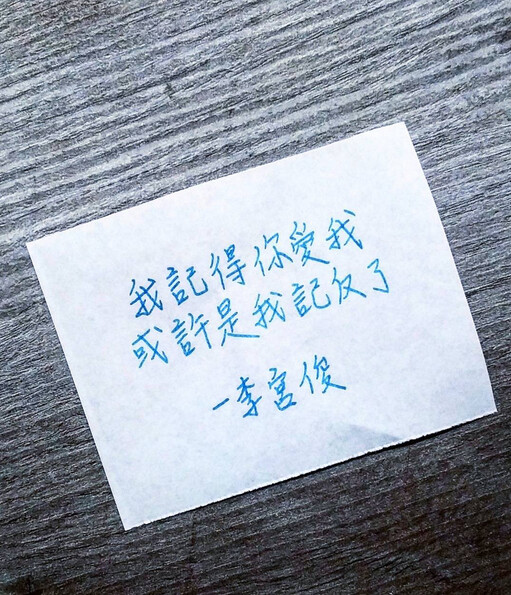 我記得你愛我
或許是我記反了
—李宮俊